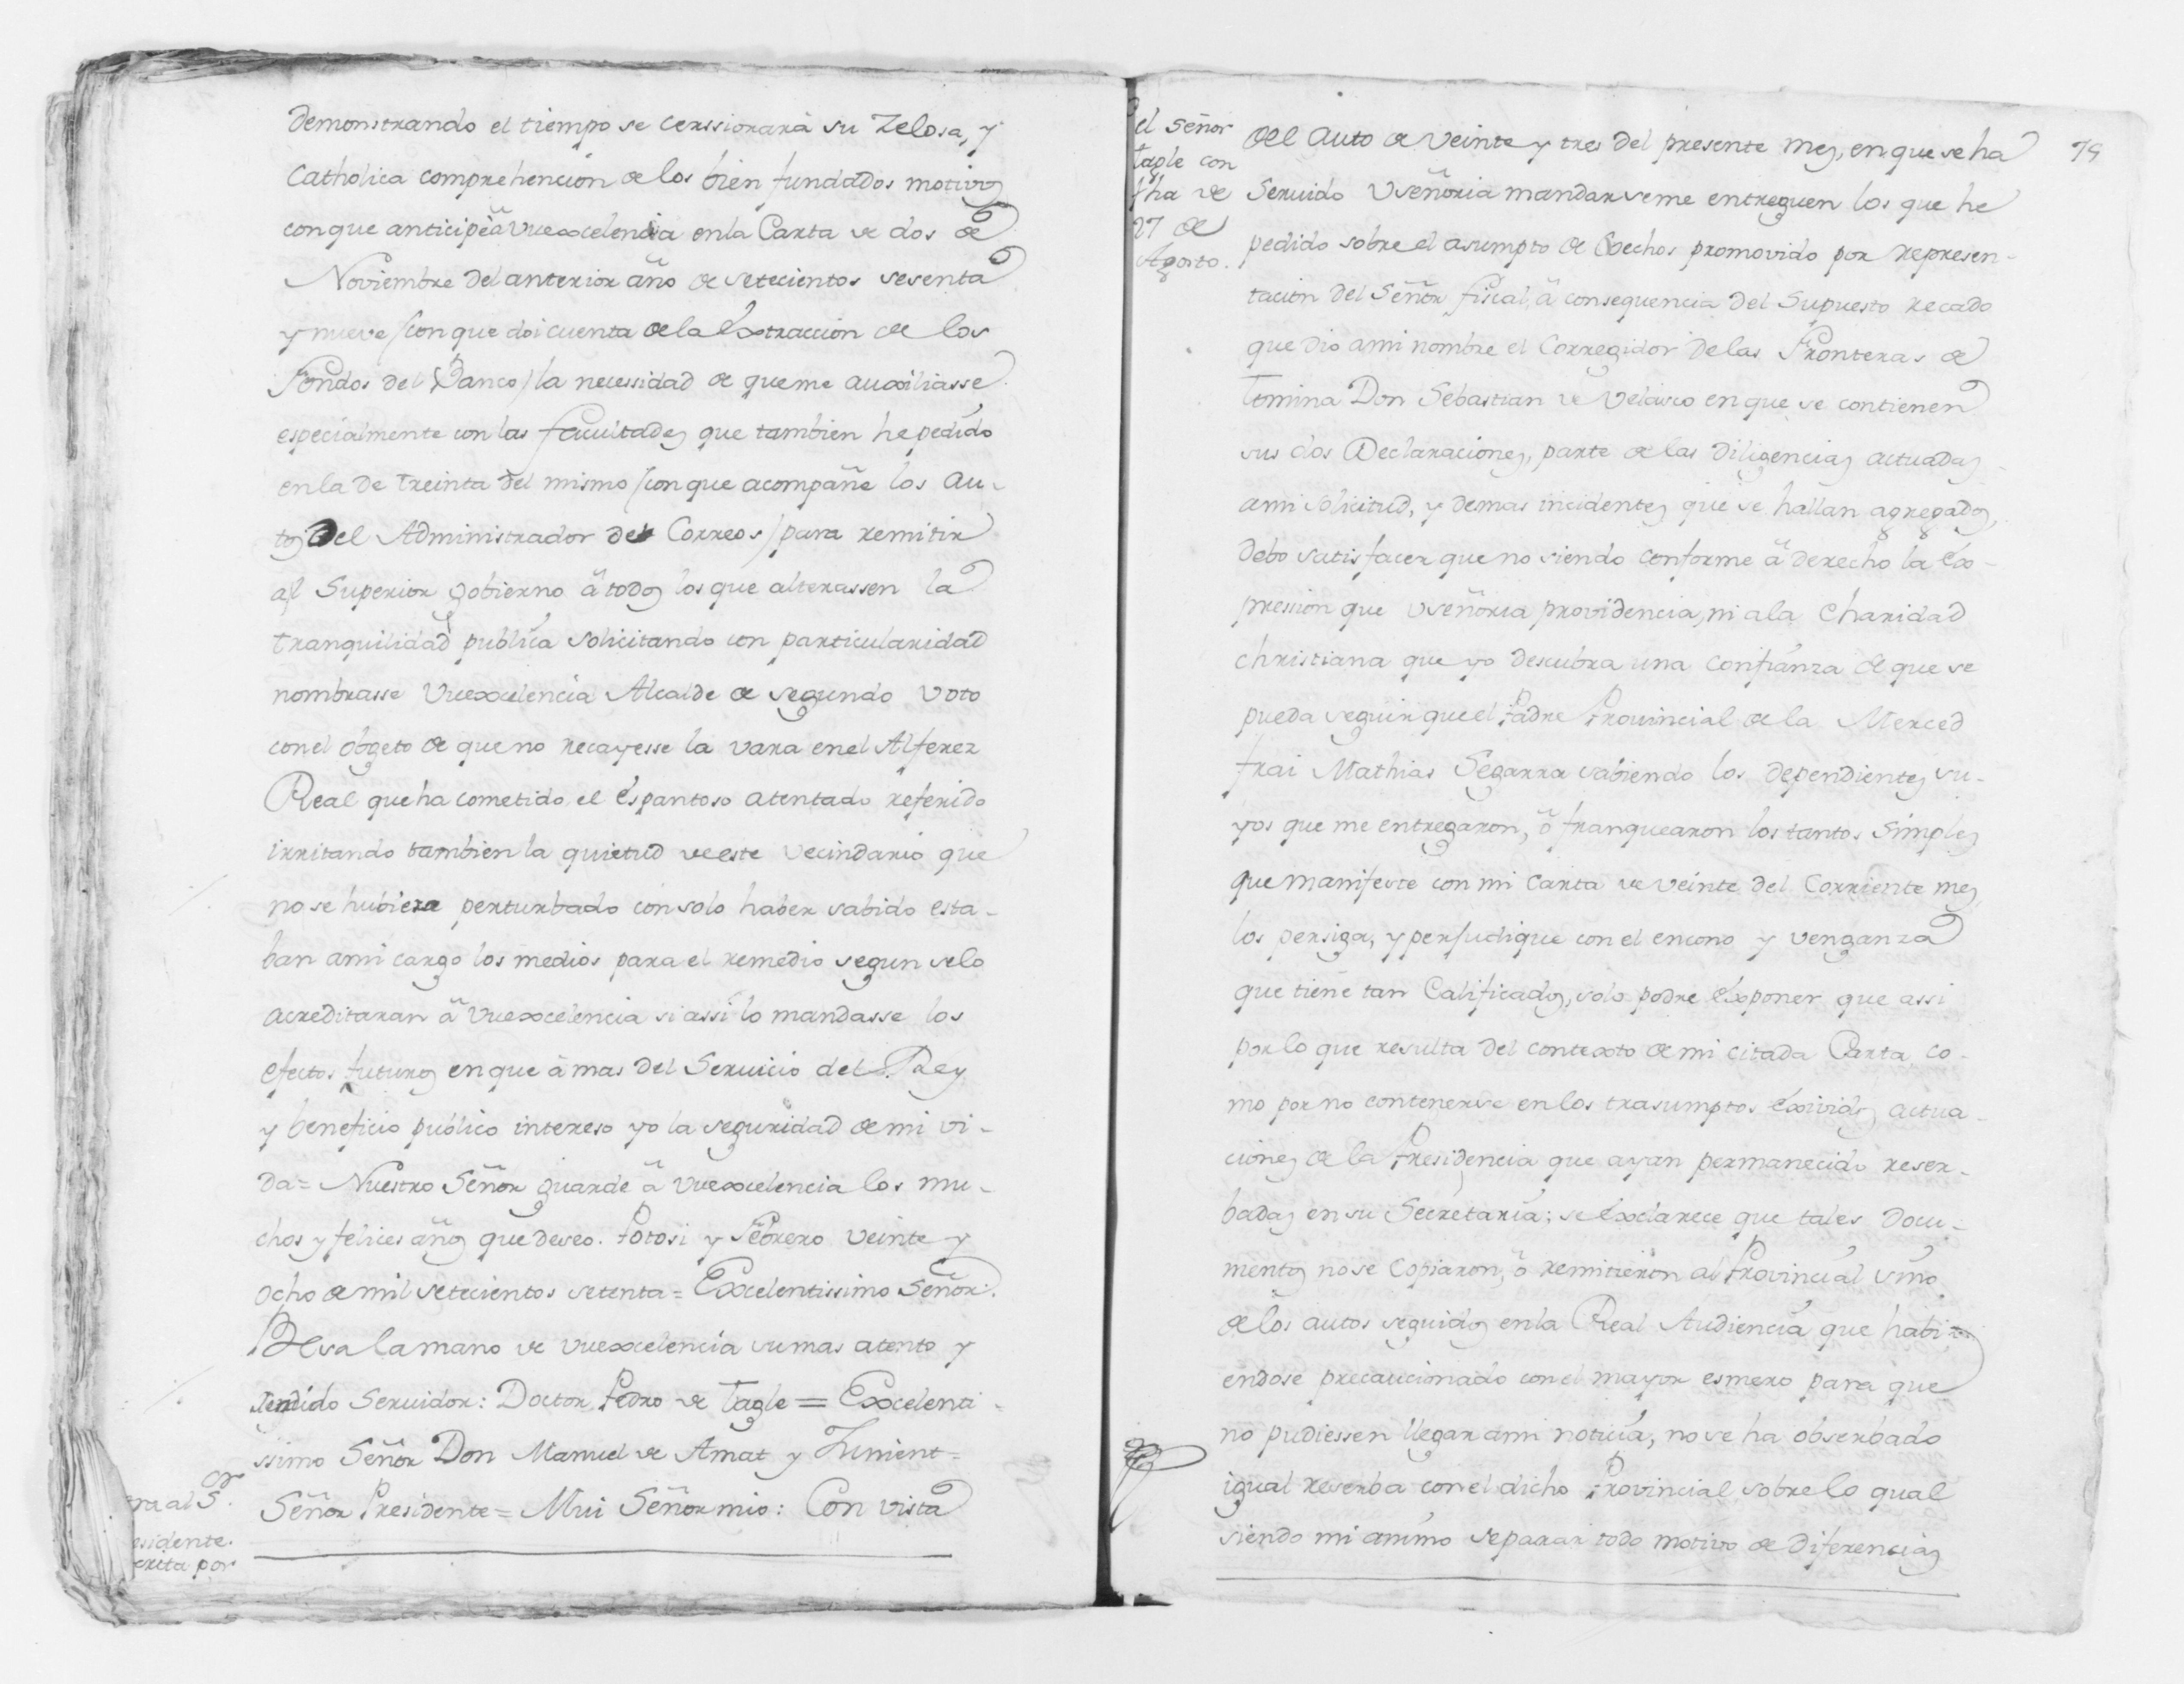 demonstrando el tiempo se cerssiorarà su zelosa, y
Catholica comprehencion de los bien fundados motivos
con que anticipè à Vuexcelencia en la Carta de dos de
Noviembre del anterior año de setecientos sesenta
y nueve /con que doi cuenta de la Extraccion de los
Fondos del Banco/ la necessidad de que me auxiliasse
especialmente con las facultades que tambien he pedido
en la de treinta del mismo /con que acompañe los Au-
tos del Administrador de Correos/ para remitir
al Superior Gobierno à todos los que alterassen la
tranquilidad publica solicitando con particularidad
nombrasse Vuexcelencia Alcalde de segundo voto
con el obgeto de que no recayesse la vara en el Alferez
Real que ha cometido el Espantoso atentado referido
irritando tambien la quietud de este vecindario que
no se hubiera perturbado con solo haber sabido esta-
ban a mi cargo los medios para el remedio segun se lo
acreditaran à Vuexcelencia si assi lo mandasse los
efectos futuros en que à mas del Servicio del Rey
y beneficio publico intereso yo la seguridad de mi vi-
da = Nuestro Señor guarde à Vuexcelencia los mu-
chos y felices años que deseo. Potosi y Febrero veinte y
ocho de mil setecientos setenta = Excelentissimo Señor.
Besa la mano de Vuexcelencia su mas atento y
rendido Servidor: Doctor Pedro de Tagle = Excelenti-
ssimo Señor Don Manuel de Amat y Junient =
Señor Presidente = Mui Señor mio: Con vista
ra al S.or
esidente.
crita por
el Señor
Tagle con
fha de
27 de
Agosto.
79
del Auto de veinte y tres del presente mes, en que se ha
Servido Vseñoria mandar se me entreguen los que he
pedido sobre el asumpto de Coechos promovido por represen-
tacion del Señor fiscal, à consequencia del Supuesto recado
que dio a mi nombre el Corregidor de las Fronteras de
Tomina Don Sebastian de Velasco en que se contienen
sus dos Declaraciones, parte de las Diligencias actuadas
a mi Solicitud, y demas incidentes que se hallan agregados,
debo satisfacer que no siendo conforme à derecho la Ex-
pression que Vseñoria providencia, ni a la Charidad
christiana que yo descubra una confianza de que se
pueda seguir que el Padre Provincial de la Merced
frai Mathias Segarra sabiendo los dependientes su-
yos que me entregaron, ò franquearon los tantos Simples
que manifesté con mi Carta de veinte del Corriente mes,
los persiga, y perjudique con el encono y venganza
que tiene tan Calificados, solo podre Exponer que assi
por lo que resulta del contexto de mi citada Carta, co-
mo por no contenerse en los trasumptos Exividos actua-
ciones de la Presidencia que ayan permanecido reser-
badas en su Secretaria; se Exclarece que tales Docu-
mentos no se Copiaron, ò remitieron al Provincial sino
de los autos seguidos en la Real Audiencia que habi-
endose precaucionado con el mayor esmero para que
no pudiessen llegar a mi noticia, no se ha obserbado
igual reserba con el dicho Provincial sobre lo qual
siendo mi animo separar todo motivo de diferencias